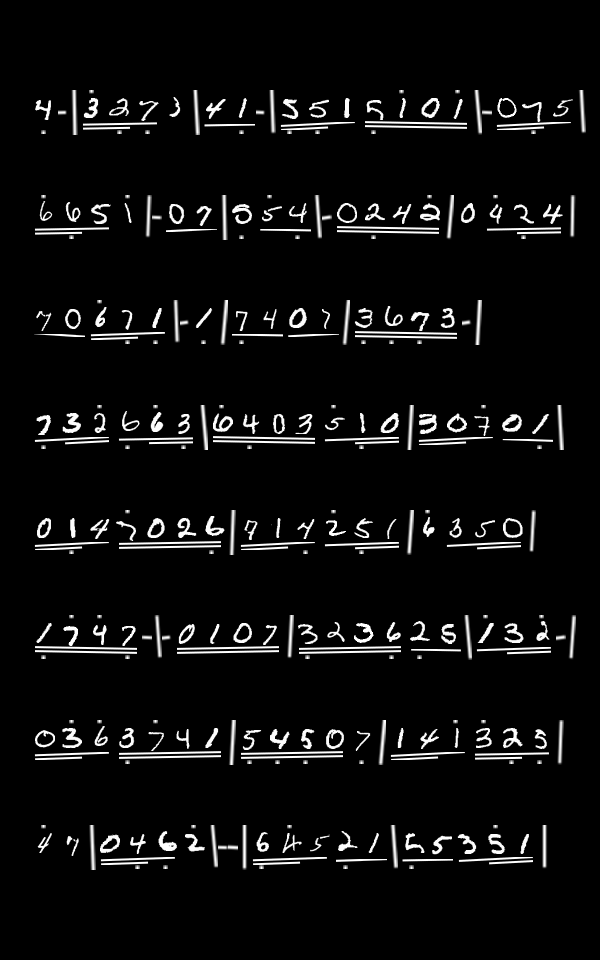 4-|3273|41-|5515101|-075|
6651|-07|854|-0242|0424|
70671|-1|7407|3673-|
732663|6403510|30701|
0147026|714251|6350|
1747-|-0107|323625|132-|
0363741|54507|141323|
47|0462|--|64521|55351|